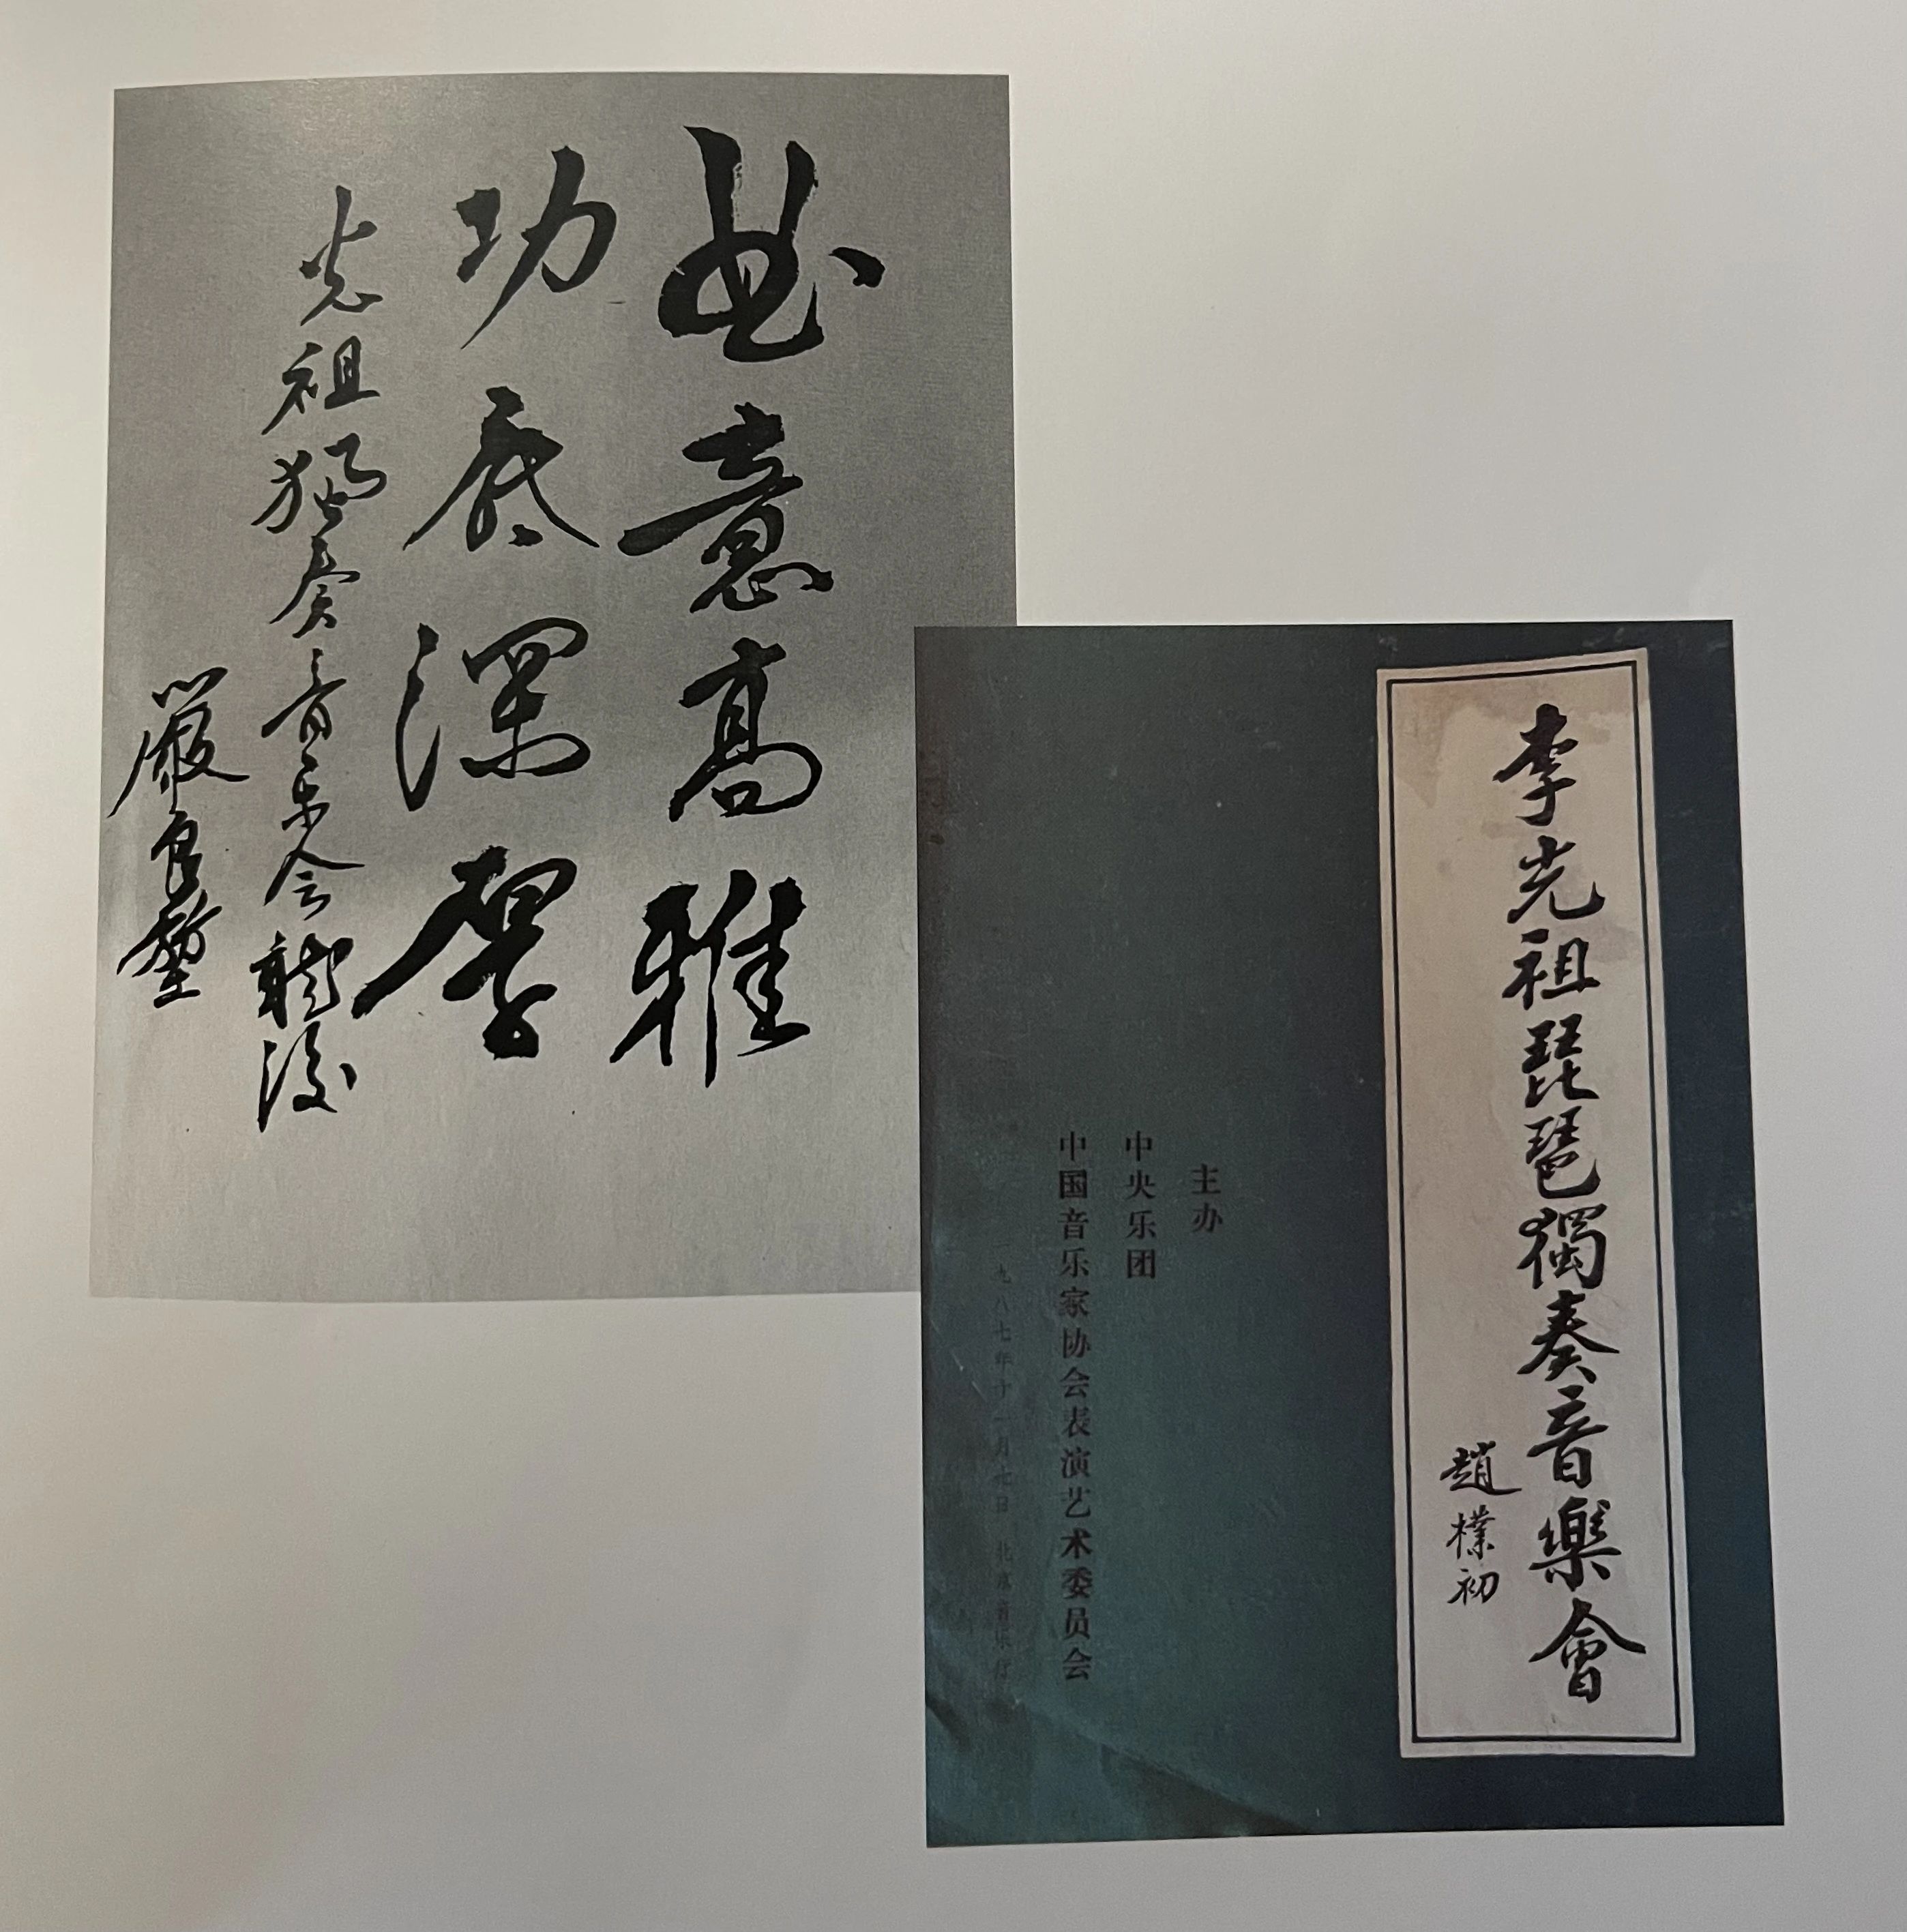 曲意高雅
功底深厚
光祖独奏音乐会聽後
嚴良堃
李光祖琵琶獨奏音樂會
趙樸初
主办
中央乐团
中国音乐家协会表演艺术委员会
一九八七年十一月七日 北京音乐厅